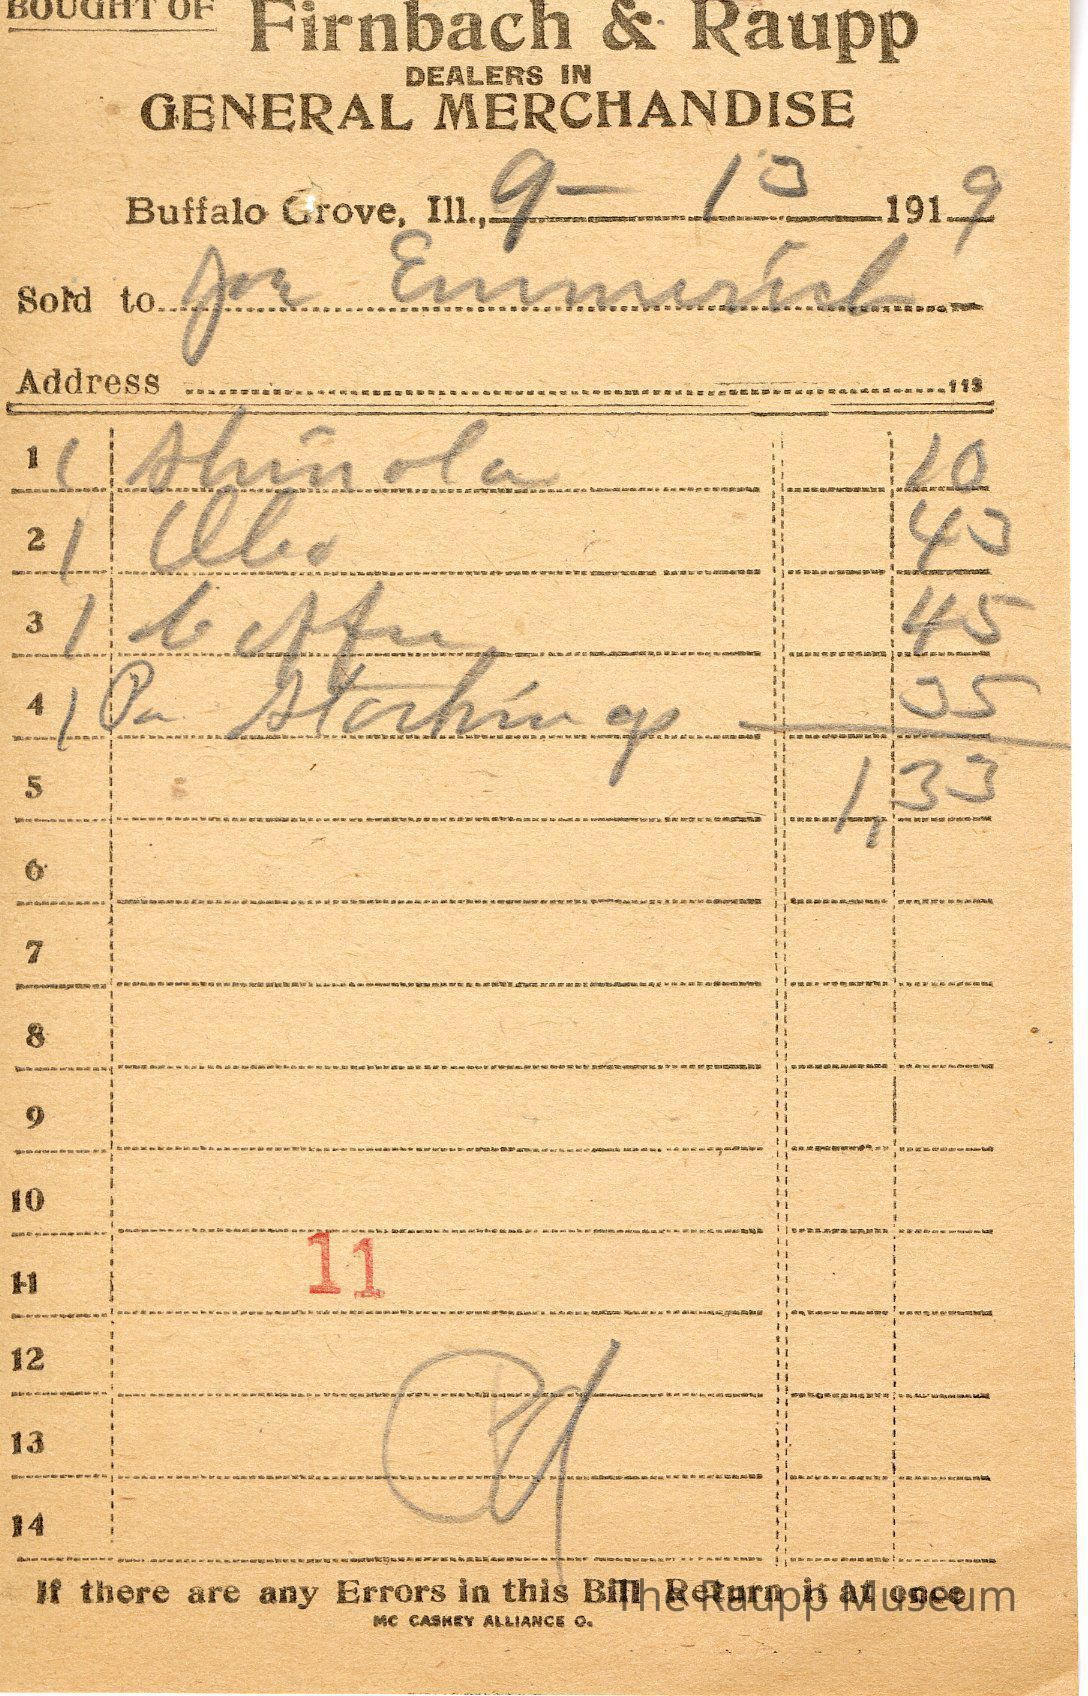 BOUGHT OF Firnbach & Raupp
DEALERS IN
GENERAL MERCHANDISE
Buffalo Grove, Ill., 9- 13 1919
Sold to Joe Emmerich
Address 113
1 1 Shinola 10
2 1 Oleo 43
3 1 Coffee 45
4 1 Pr Stockings 35
5 1,33
6
7
8
9
10
11 11
12
13
14
If there are any Errors in this Bill Return it at once
MC CASKEY ALLIANCE O.
The Raupp Museum